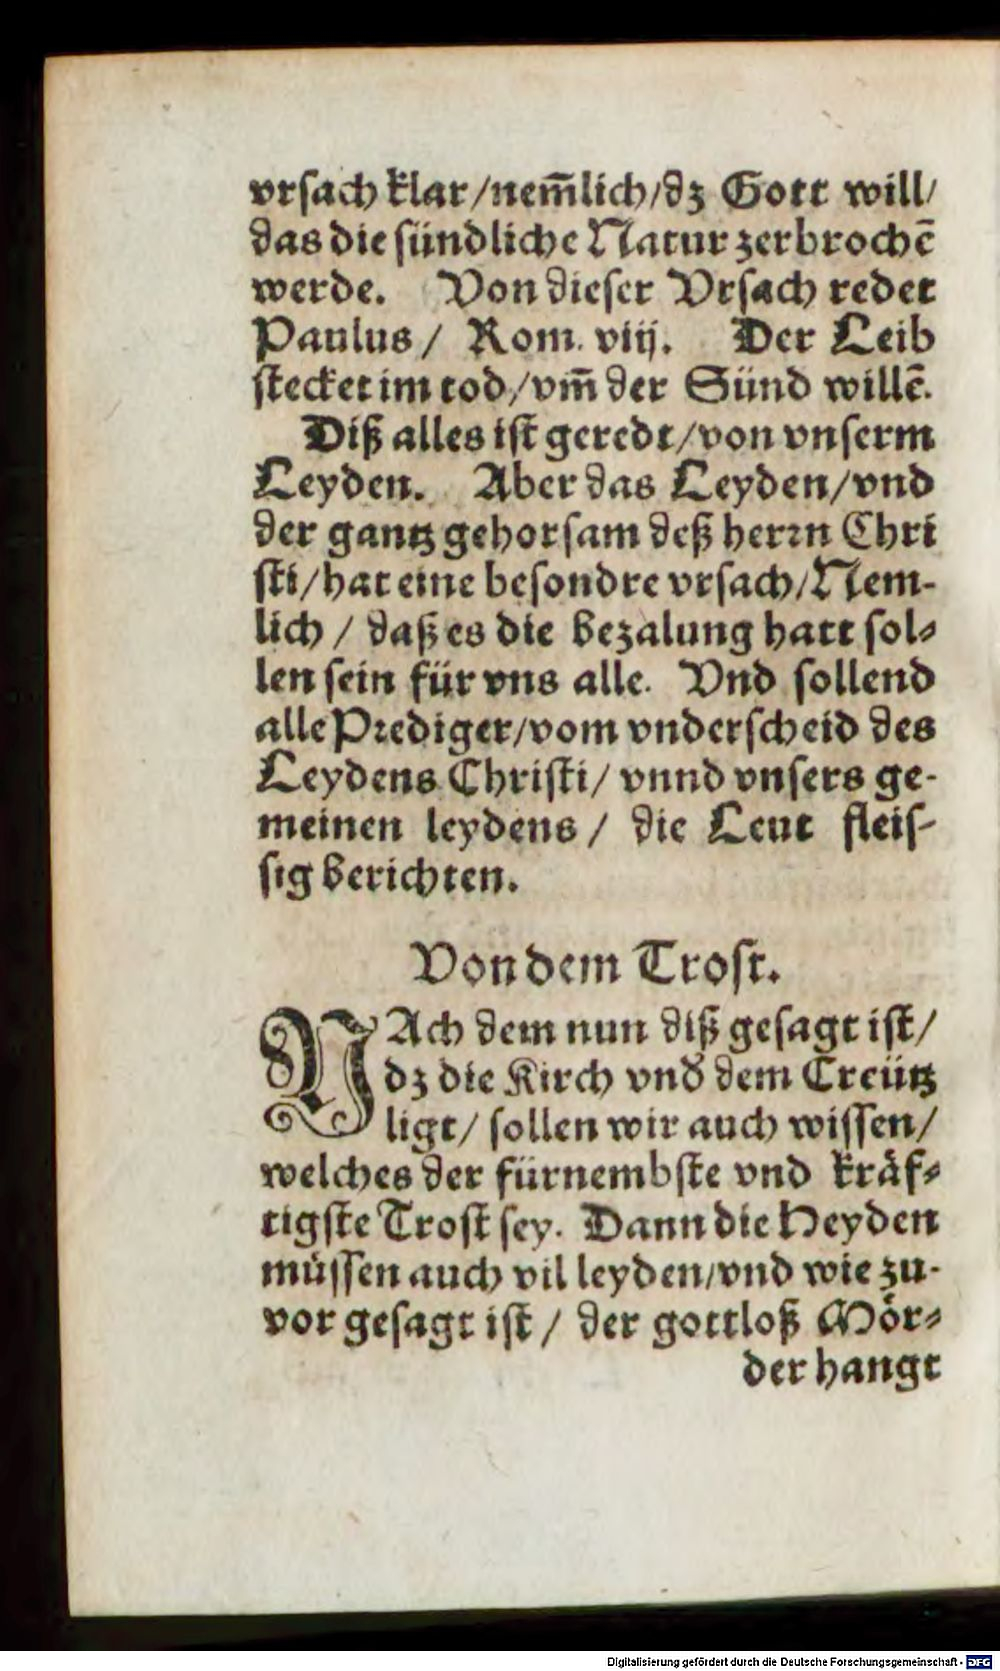 vrsach klar/nem̃lich/dz Gott will/
das die sündliche Natur zerbrochẽ
werde. Von dieser Vrsach redet
Paulus/ Rom. viij. Der Leib
stecket im tod/vm̃ der Sünd willẽ.
Diß alles ist geredt/von vnserm
Leyden. Aber das Leyden/vnd
der gantz gehorsam deß herrn Chri
sti/hat eine besondre vrsach/Nem-
lich / daß es die Bezalung hatt sol-
len sein für vns alle. Vnd sollend
alle Prediger/vom vnderscheid des
Leydens Christi/ vnnd vnsers ge-
meinen leydens / die Leut fleis-
sig berichten.
Von dem Trost.
NAch dem nun diß gesagt ist/
dz die Kirch vnd̉ dem Creütz
ligt/ sollen wir auch wissen/
welches der fürnembste vnd kräf-
tigste Trost sey. Dann die Heyden
müssen auch vil leyden/vnd wie zu-
vor gesagt ist / der gottloß Mör-
der hangt
Digitalisierung gefördert durch die Deutsche Forschungsgemeinschaft - DFG